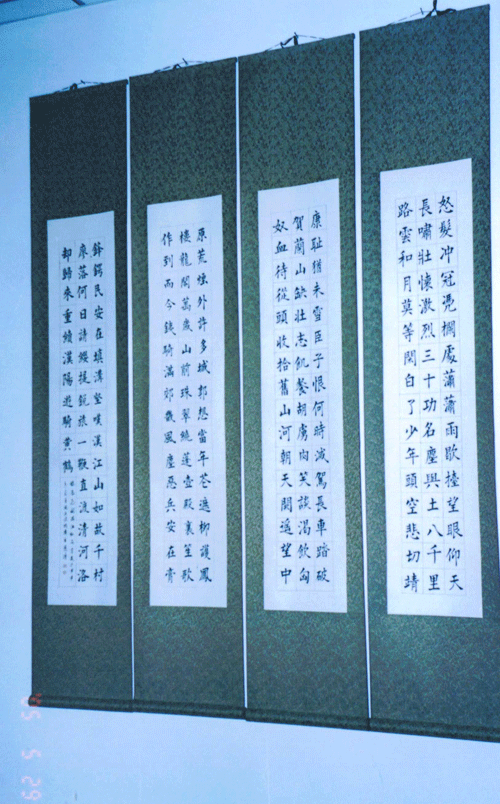 怒髮冲冠凴欄處瀟瀟雨歇擡望眼仰天
長嘯壯懷激烈三十功名塵與土八千里
路雲和月莫等閑白了少年頭空悲切靖
康耻猶未雪臣子恨何時滅駕長車踏破
賀蘭山缺壯志飢餐胡虜肉笑談渴飲匈
奴血待從頭收拾舊山河朝天闕遥望中
原荒煙外許多城郭想當年花遮柳護鳳
樓龍閣萬歲山前珠翠繞蓬壺殿裏笙歌
作到而今鐵騎滿郊畿風塵惡兵安在膏
鋒鍔民安在填溝壑嘆漢江山如故千村
寥落何日請纓提銳旅一鞭直渡清河洛
却歸來重續漢陽遊騎黄鶴
05 5 29